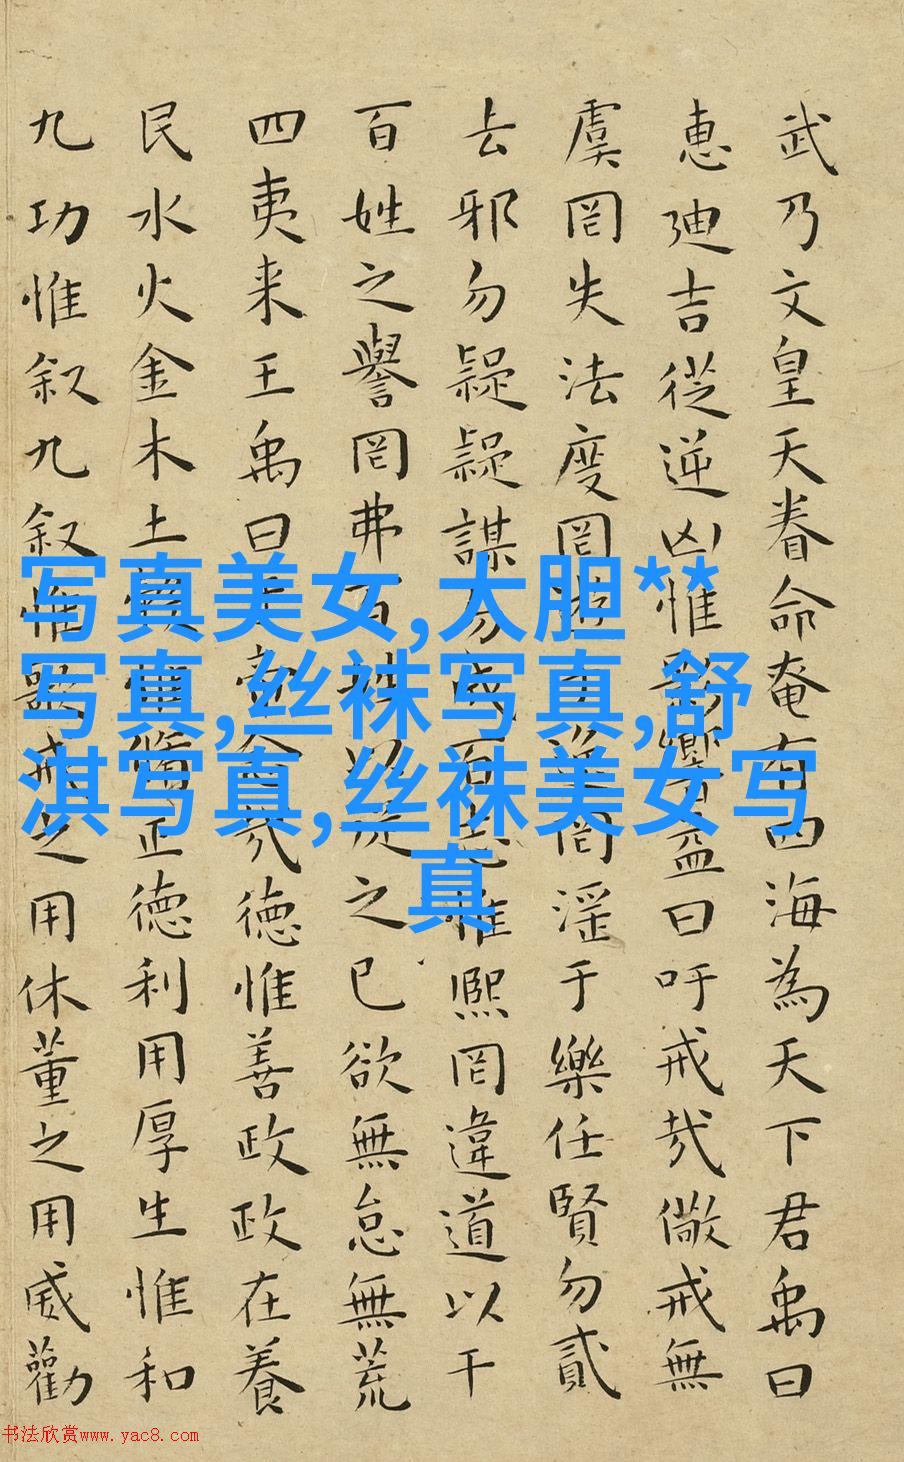 武乃文皇天眷命奄有四海為天下君禹曰
惠迪吉從逆凶惟影響益曰吁戒哉儆戒無
虞罔失法度罔游于罔淫于樂任賢勿貳
去邪勿疑疑謀勿成百志惟熙罔違道以干
百姓之譽罔弗百姓以從之已欲無怠無荒
四夷来王禹曰帝念哉德惟善政政在養
民水火金木土惟脩正德利用厚生惟和
九功惟叙九叙惟歌戒之用休董之用威勸
写真美女,大胆**
写真,丝袜写真,舒
淇写真,丝袜美女写
真
书法欣赏www.yac8.com